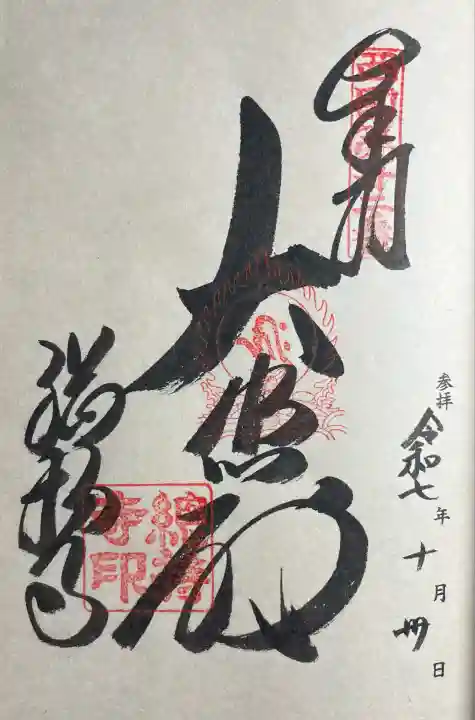 奉拝
大悲殿
総持寺
總持寺印
参拝 令和七年十月卅日